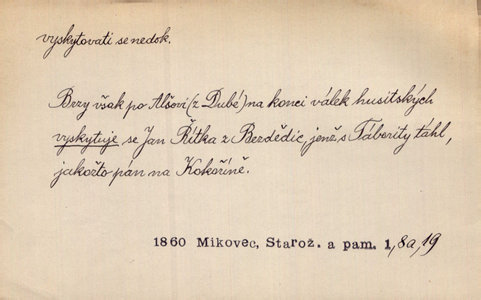 vyskytovati se nedok.
Brzy však po Alšovi (z Dubé) na konci válek husitských
vyskytuje se Jan Řitka z Bezdědic, jenž s Tábority táhl,
jakožto pan na Kokoříně.
1860 Mikovec, Starož. a pam. 1, 8a, 19